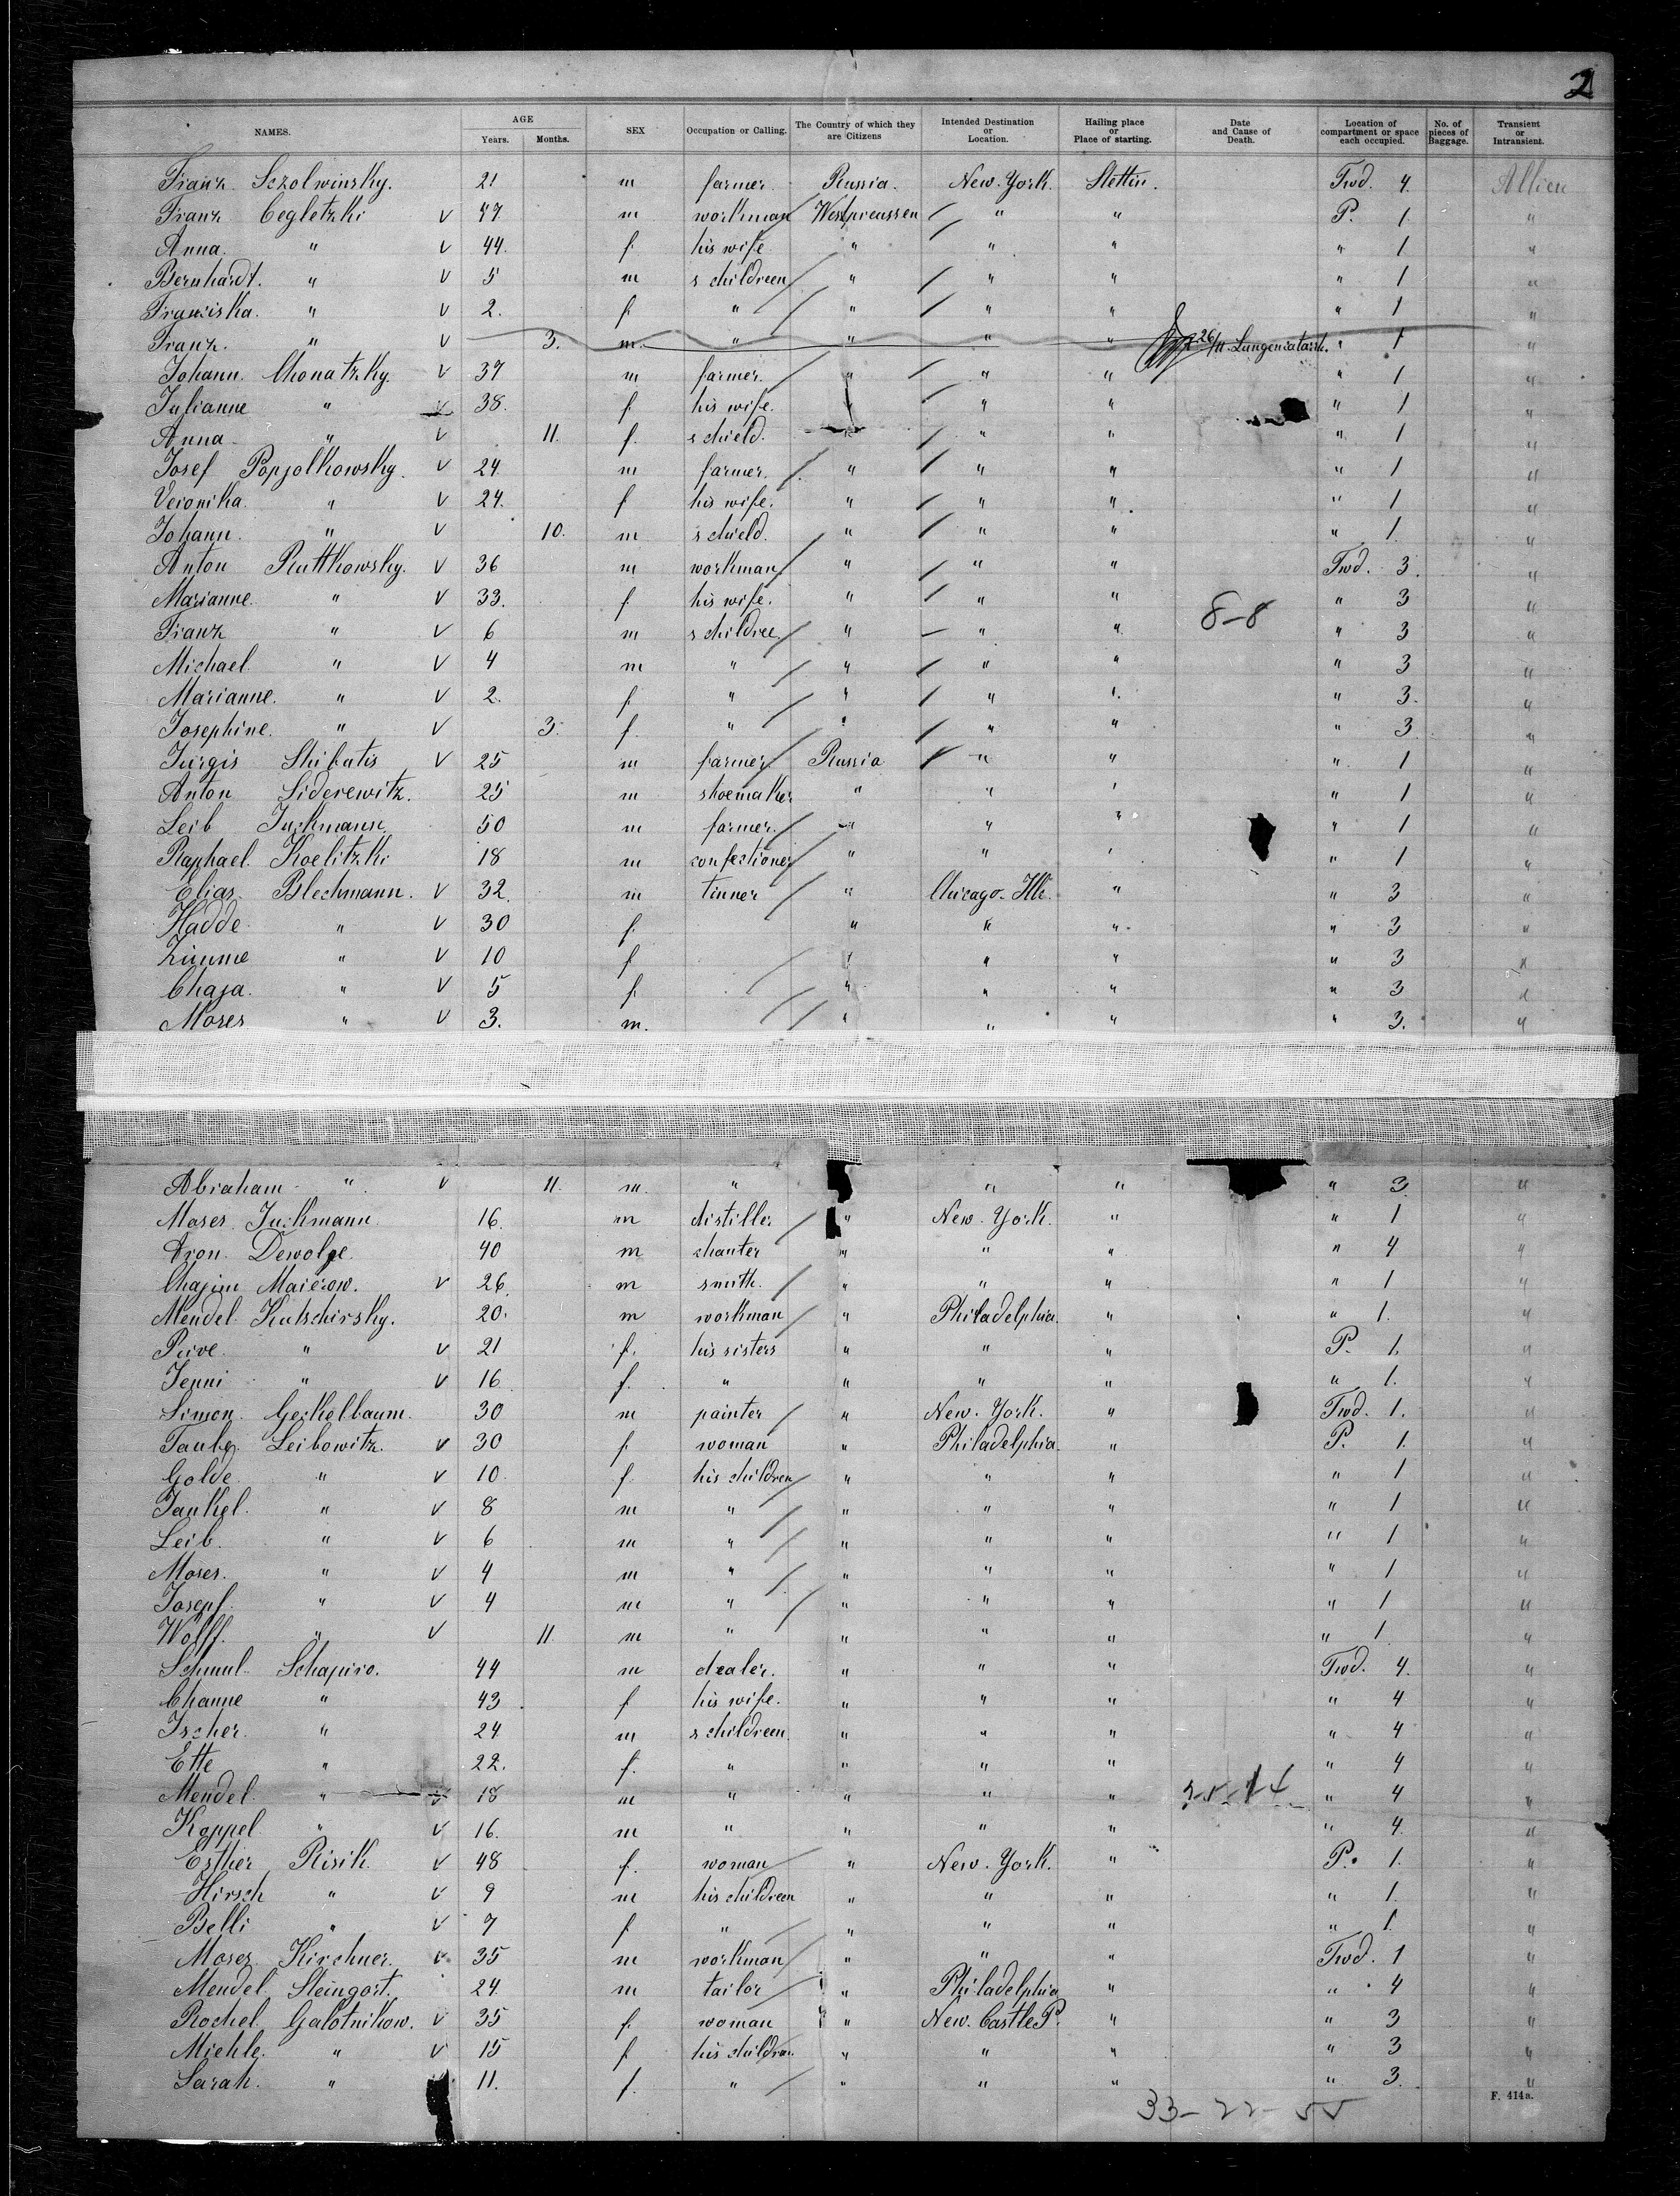 2
NAMES. AGE Years. Months. SEX Occupation or Calling. The Country of which they are Citizens Intended Destination or Location. Hailing place or Place of starting. Date and Cause of Death. Location of compartment or space each occupied. No. of pieces of Baggage. Transient or Intransient.
Franz Sczolwinsky. 21 m farmer. Russia. New-York. Stettin. Twd. 4. Allien
Franz Cegletzki v 47 m workman Westpreussen " " P. 1 "
Anna. " v 44. f. his wife. " " " " 1 "
Bernhardt. " v 5 m s childreen " " " " 1 "
Franziska. " v 2. f. " " " " " 1 "
Franz. " v 3. m. " " " " 26/11. " 1 "
Johann. Chonatzky. v 37 m farmer. " " " " 1 "
Julianne " v 38. f. his wife. " " " " 1 "
Anna " v 11. f. s chield. " " " " 1 "
Josef Popjolkowsky. v 24. m farmer. " " " " 1 "
Veronika. " v 24. f his wife. " " " " 1 "
Johann. " v 10. m s chield. " " " " 1. "
Anton Ruttkowsky. v 36 m workman " " " Twd. 3. "
Marianne. " v 33. f. his wife. " " " " 3 "
Franz " v 6 m s childree " " " 8-8 " 3 "
Michael. " v 4 m " " " " " 3 "
Marianne. " v 2. f " " " " " 3. "
Josephine. " v 3. f. " " " " " 3 "
Jurgis Skibatis v 25 m farmer Russia " " " 1 "
Anton Siderewitz. 25 m shoemaker " " " " 1 "
Leib Juckmann 50 m farmer. " " " " 1 "
Raphael. Koelitzki 18 m confectioner " " " " 1 "
Elias. Blechmann. v 32. m tinner " Chicago. Ills. " " 3 "
Hadde " v 30 f. " " " " 3 "
Zimme " v 10 f " " " " 3 "
Chaja. " v 5 f. " " " " 3 "
Moses " v 3. m. " " " " 3. "
Abraham " v 11. m. " " " " 3 "
Moses Juckmann 16. m distiller " New-York. " " 1 "
Aron. Dewolge. 40 m chanter " " " " 4 "
Chajim Maierow. v 26. m smith. " " " " 1 "
Mendel Kutschirsky. 20. m workman " Philadelphia. " " 1. "
Pive. " v 21 f. his sisters " " " P. 1. "
Jenni " v 16 f. " " " " " 1. "
Simon. Geckelbaum. 30 m painter " New-York. " Twd. 1. "
Taube. Leibowitz. v 30 f. woman " Philadelphia. " P. 1. "
Golde. " v 10. f. his children " " " " 1 "
Jankel. " v 8 m " " " " " 1 "
Leib. " v 6 m " " " " " 1 "
Moses. " v 4 m " " " " " 1 "
Josepf. " v 4 m " " " " " 1 "
Wolff. " v 11. m " " " " " 1. "
Schmul. Schapiro. 44 m dealer. " " " Twd. 4. "
Channe " 43. f his wife. " " " " 4 "
Ischer. " 24 m s childreen. " " " " 4 "
Ette " 22. f. " " " " " 4 "
Mendel. " v 18 m " " " " " 4 "
Koppel. " v 16. m " " " " " 4. "
Esther Risik. v 48 f. woman " New-York. " P. 1. "
Hirsch " v 9 m his childreen " " " " 1. "
Belli " v 7 f " " " " " 1. "
Moses Kirchner. v 35 m workman " " " Twd. 1 "
Mendel Steingort. 24. m tailor " Philadelphia " " 4 "
Rochel. Galotnikow. v 35 f. woman " New. Castle P. " " 3 "
Miehle. " v 15 f his children " " " " 3 "
Sarah. " 11. f. " " " " " 3. "
F. 414a.
33-22-55